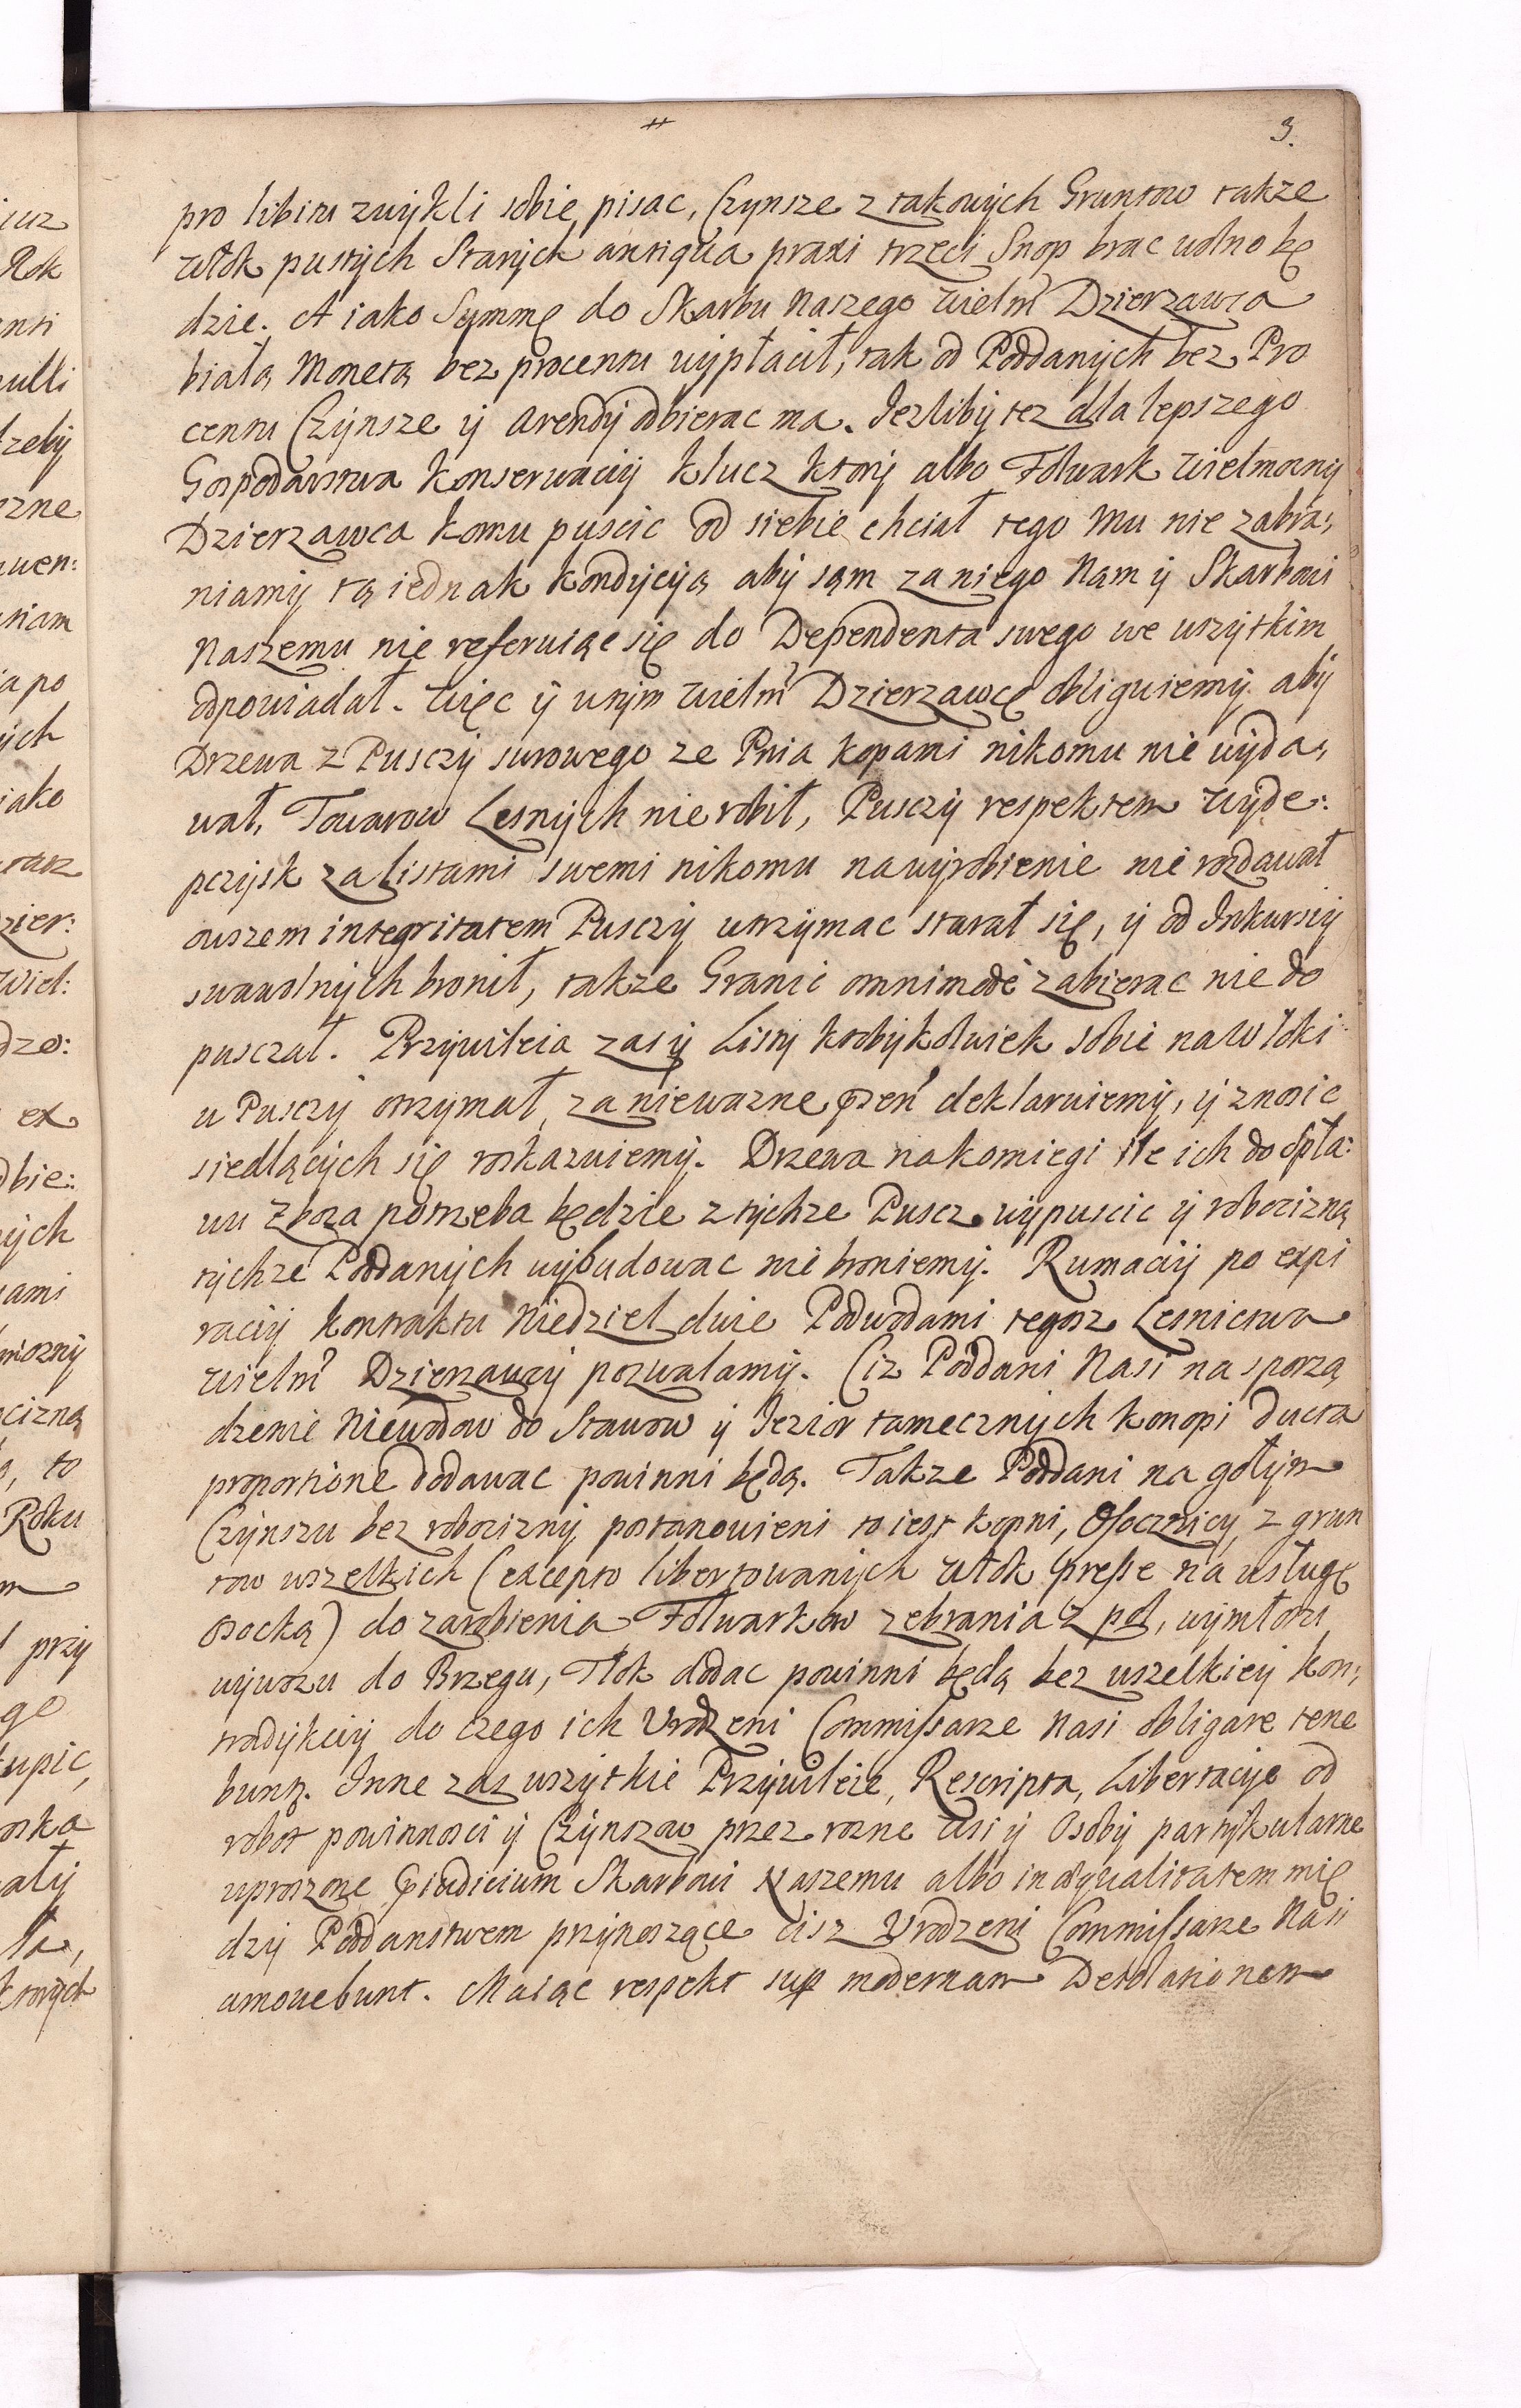 3.
pro libitu zwykli sobie pisac, Czynsze z takowych Gruntow takze
włok pustych Starych antiqua praxi trzeci Snop brac wolno bę
dzie. A iako Summę do Skarbu Naszego Wielm Dzierzawca
białą Monetą bez procentu wypłacił, tak od Poddanych bez Pro
centu Czynsze y Arendy odbierac ma. Iezliby tez dla lepszego
Gospodarstwa konserwacyi klucz ktory albo Folwark Wielmozny
Dzierzawca komu puscic od siebie chciał tego Mu nie zabra,
niamy tą iednak kondycyą aby sąm za niego Nam y Skarbowi
Naszemu nie referuiąc się do Dependenta swego we wszytkim
odpowiadał. Więc y w tym Wielm Dzierzawcę obliguiemy aby
Drzewa z Pusczy surowego ze Pnia kopami nikomu nie wyda,
wał, Towarow Lesnych nie robił, Pusczy respektem Wyde:
pczysk za Listami swemi nikomu na wyrobienie nie rozdawał
owszem integritatem Pusczy utrzymac starał się, y od Inkursiy
swawolnych bronił, takze Granic omnimode zabierac nie do
pusczał. Przywileia zas y Listy ktobykolwiek sobie na Włoki
w Pusczy otrzymał, za niewazne deklaruiemy, y znosic
siedlących się roskazuiemy. Drzewa na komiegi ile ich do spła:
wu Zboza potrzeba będzie z tychze Puscz wypuscic y robocizną
tychze Poddanych wybudowac nie broniemy. Rumacyi po expi
racyi kontraktu Niedziel dwie Podwodami tegosz Lesnictwa
Wielm Dzierzawcy pozwalamy. Ciz Poddani Nasi na sporzą
dzenie Niewodow do Stawow y Iezior tamecznych konopi ducta
proportione dodawac powinni będą. Takze Poddani na gołym
Czynszu bez robocizny postanowieni to iest kopni, Osocznicy, z grun
tow wszelkich (excepto libertowanych Włok na usługę
osocką) do zarobienia Folwarkow zebrania z pol, wymłotu
wywozu do Brzegu, Tłok dodac powinni będą bez wszelkiey kon,
tradykcyi do czego ich Urodzeni Commissarze Nasi obligare tene
bunt. Inne zas wszytkie Przywileie, Rescripta, Libertacye od
robot powinnosci y Czynszow przez rozne Wsi y Osoby partykularne
uproszone Skarbowi Naszemu albo inaequalitatem mię
dzy Poddanstwem przynoszące cisz Urodzeni Commissarze Nasi
amovebunt. Maiąc respekt modernam Desolationem